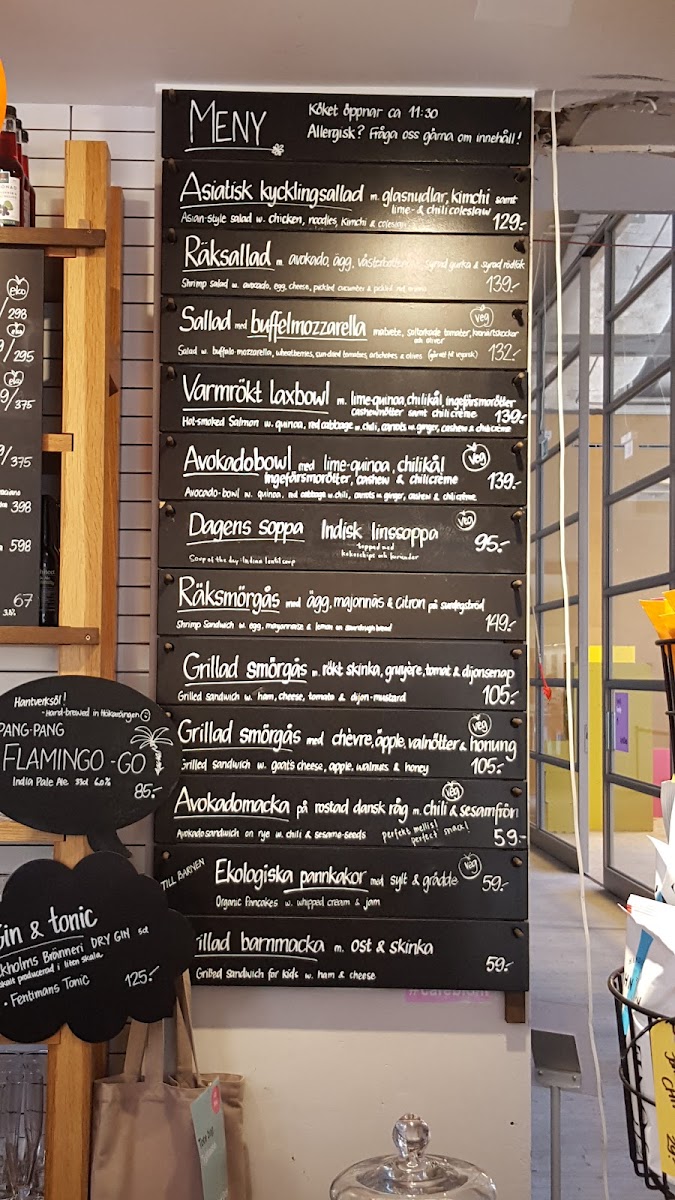 MENY
Köket öppnar ca 11:30
Allergisk? Fråga oss gärna om innehåll!
Asiatisk kycklingsallad m. glasnudlar, kimchi samt
lime- & chilicoleslaw
Asian-style salad w. chicken, noodles, kimchi & coleslaw
129:-
Räksallad m. avokado, ägg, syrad gurka & syrad rödlök
Shrimp salad w. avocado, egg, cheese, pickled cucumber & pickled red onions
139:-
Sallad med buffelmozzarella matvete, soltorkade tomater, kronärtskockor
och oliver
veg
Salad w. buffalo mozzarella, wheatberries, sun-dried tomatoes, artichokes & olives (går att få vegansk)
132:-
Varmrökt laxbowl m. lime-quinoa, chilikål, ingefärsmorötter
cashewnötter samt chilicrème
Hot-smoked Salmon w. quinoa, red cabbage w. chili, carrots w. ginger, cashew & chilicrème
139:-
Avokadobowl med lime-quinoa, chilikål
ingefärsmorötter, cashew & chilicrème
veg
Avocado-bowl w. quinoa, red cabbage w. chili, carrots w. ginger, cashew & chilicrème
139:-
Dagens soppa Indisk linssoppa
veg
topped med
kokoschips och koriander
Soup of the day: Indian lentil soup
95:-
Räksmörgås med ägg, majonnäs & citron på surdegsbröd
Shrimp Sandwich w. egg, mayonnaise & lemon on sourdough bread
149:-
Grillad smörgås m. rökt skinka, gruyère, tomat & dijonsenap
Grilled sandwich w. ham, cheese, tomato & dijon-mustard
105:-
Grillad smörgås med chèvre, äpple, valnötter & honung
veg
Grilled sandwich w. goat's cheese, apple, walnuts & honey
105:-
Avokadomacka på rostad dansk råg m. chili & sesamfrön
veg
Avokadosandwich on rye w. chili & sesame-seeds
perfekt mellis!
perfect snack!
59:-
TILL BARNEN
Ekologiska pannkakor med sylt & grädde
veg
Organic Pancakes w. whipped cream & jam
59:-
illad barnmacka m. ost & skinka
Grilled sandwich for kids w. ham & cheese
59:-
eko
/298
/295
9/375
9/375
398
598
67
Hantverksöl!
PANG-PANG
FLAMINGO-GO
India Pale Ale 33cl 6.0%
85:-
Gin & tonic
kholms Bränneri DRY GIN 5cl
producerad i liten skala
· Fentimans Tonic
125:-